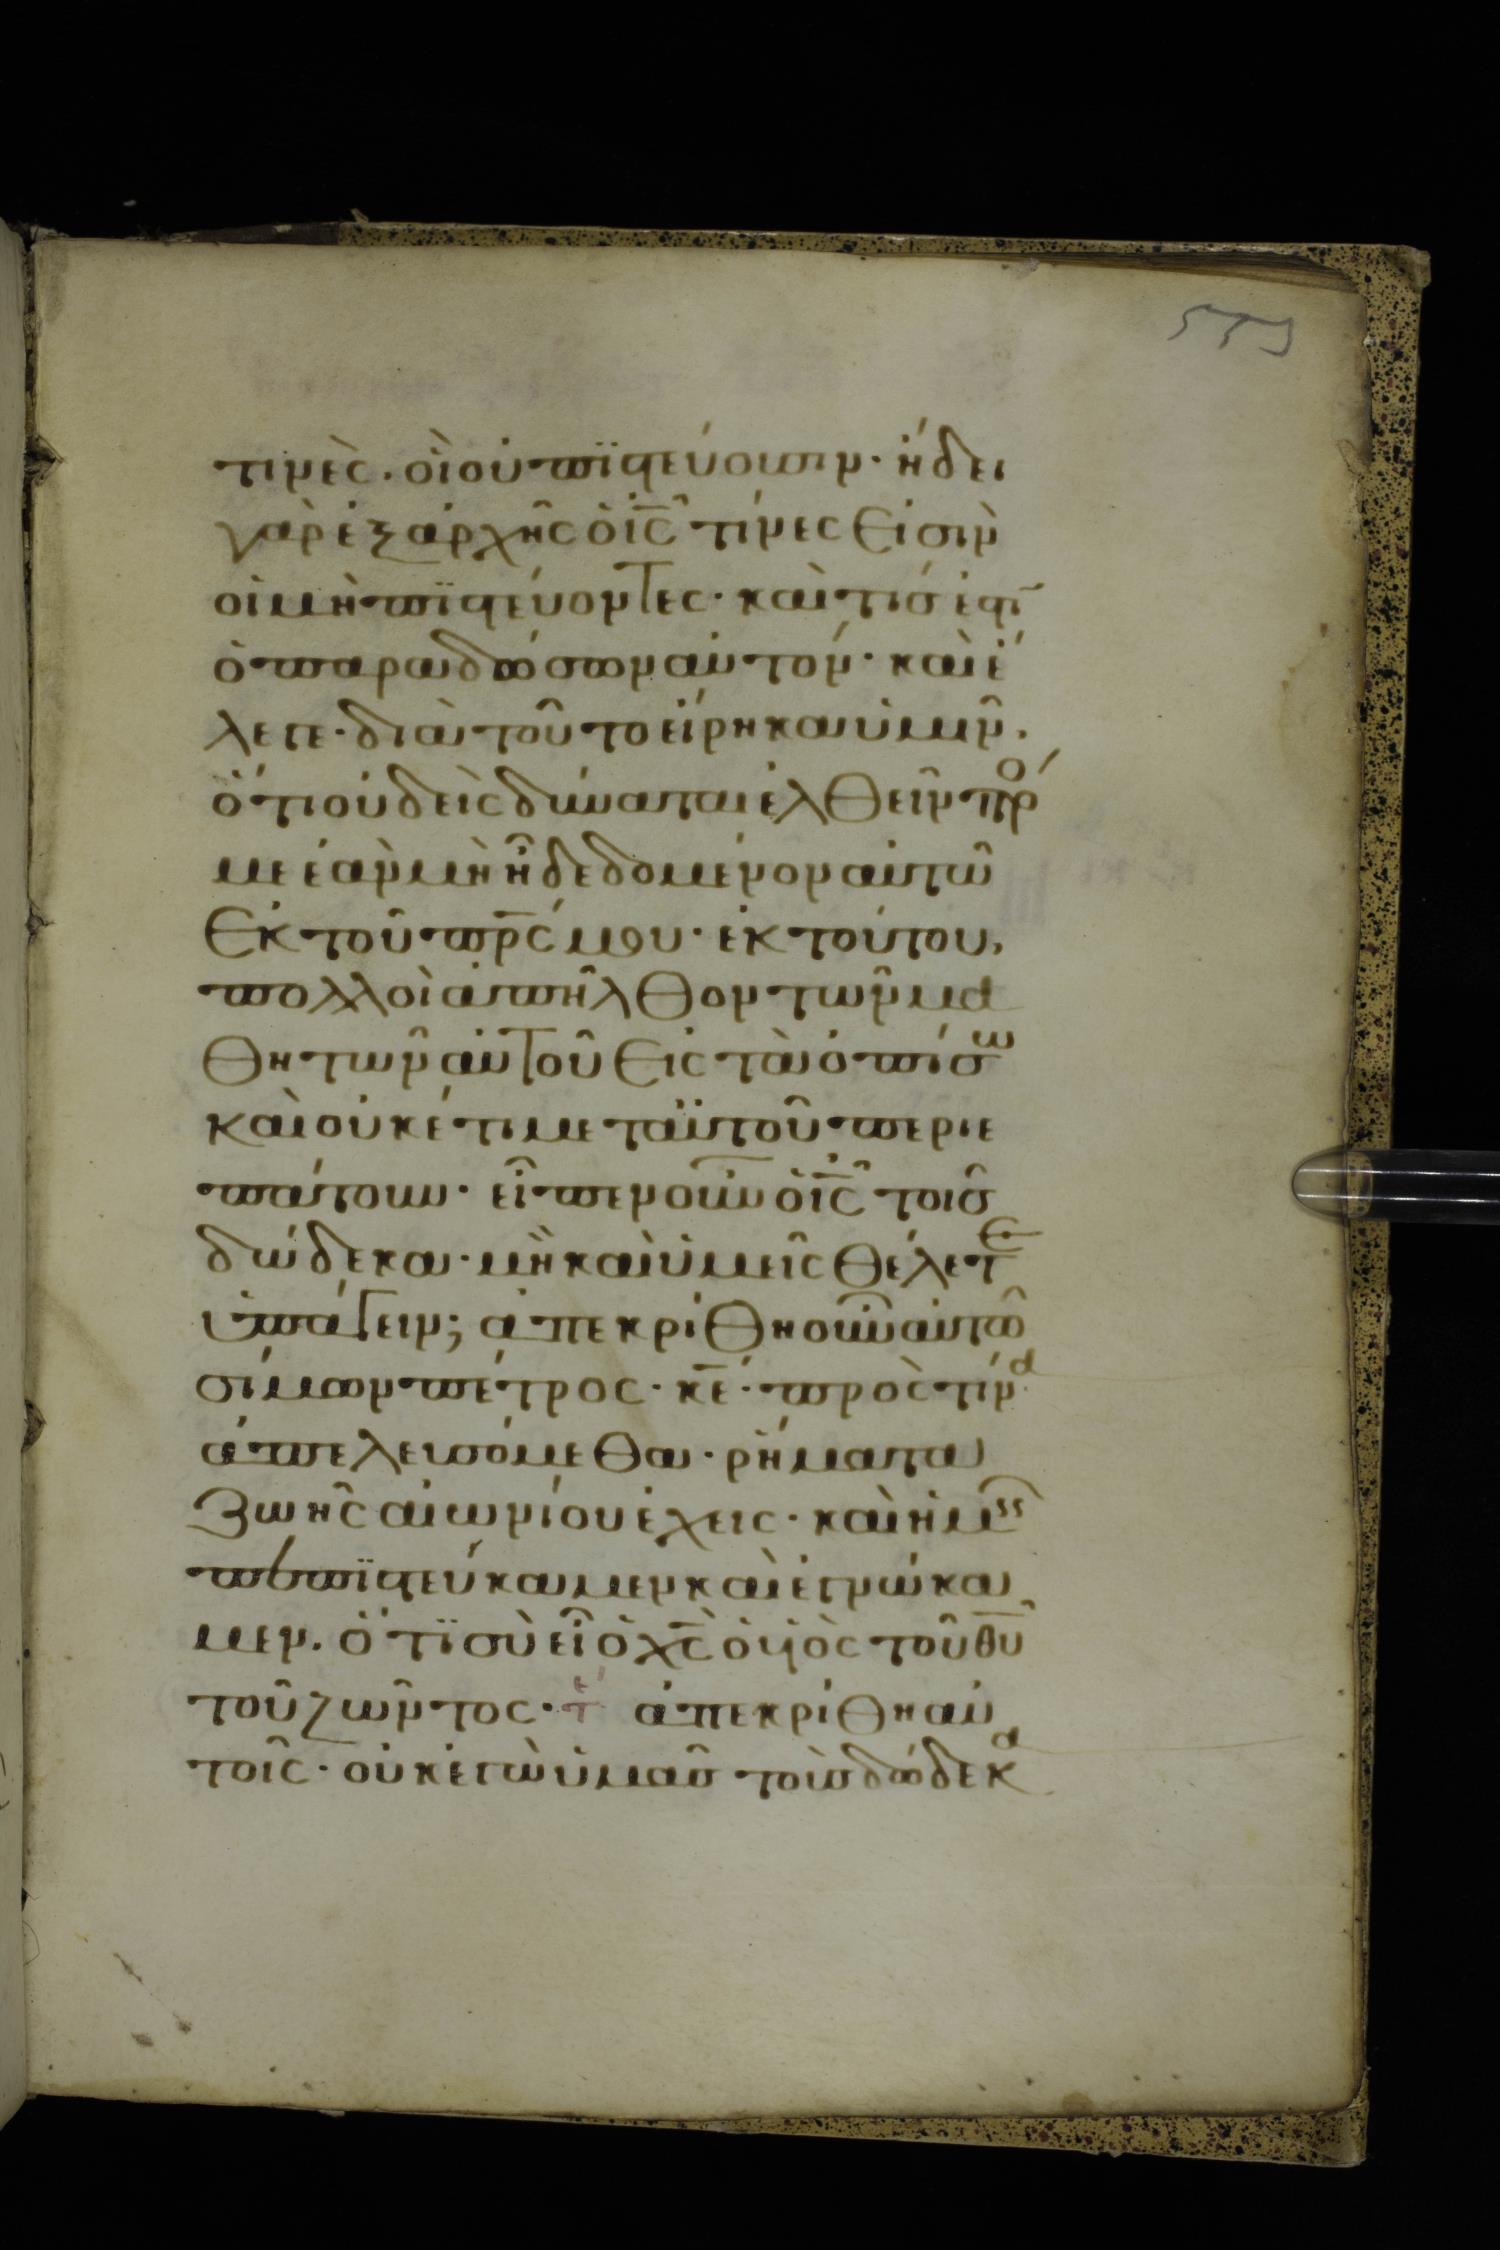 τινὲς. οἳ οὐ πϊστεύουσιν· ἤδει
γὰρ ἐξ ἀρχῆς ὁ ἰ̅ς̅ τίνες εἰσὶν
οἱ μὴ πϊστεύοντες· καὶ τίσ ἐστϊ
ὁ παραδώσων αὐτόν· καὶ ἔ
λεγε· διὰ τοῦτο εἴρηκα ὑμῖν.
ὅτι οὐδεὶς δύναται ἐλθεῖν πρό
με ἐὰν μὴ ἦ δεδομένον αὐτῶ
ἐκ τοῦ πρ̅ς̅ μου· ἐκ τούτου,
πολλοὶ ἀπῆλθον τῶν μα
θητῶν αὐτοῦ εἰς τὰ ὀπίσω
καὶ οὐκέτι μετ αὐτοῦ περιε
πάτουν· εἶπεν οὖν ὁ ἰ̅ς̅ τοῖσ
δώδεκα· μὴ καὶ ὑμεῖς θέλετε
ὑπάγειν; ἀπεκρίθη οὖν αὐτῶ
σίμων πέτρος· κ̅ε̅· πρὸς τίνα
ἀπελευσόμεθα· ῥήματα
ζωῆς αἰωνίου ἔχεις· καὶ ἡμεῖς
πεπϊστεύκαμεν καὶ ἐγνώκα
μεν. ὅτϊ σὺ εἶ ὁ χ̅ς̅ ὁ υἱὸς τοῦ θ̅υ̅
τοῦ ζῶντος· τε ἀπεκρίθη αὐ
τοῖς· οὐκ ἐγὼ ὑμᾶσ τοὺσ δώδεκα